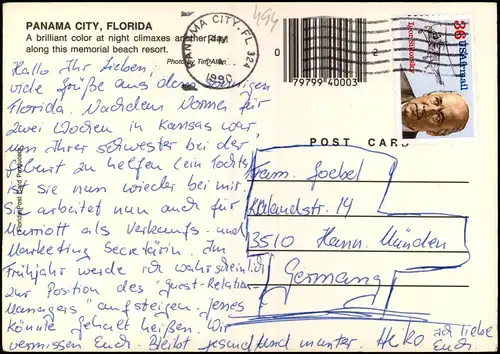 PANAMA CITY, FLORIDA
A brilliant color at night climaxes another day
along this memorial beach resort.
Photo by Tim Allen
494
PANAMA CITY, FL 324
PM
1990
0 2
79799 40003
36 USAirmail
Igor Sikorsky
POST CARD
Florida Post Card
Hallo Ihr Lieben,
viele Grüße aus dem sonnigen
Florida. Nachdem für
zwei Wochen in Kansas war,
um Ihrer Schwester bei der
Geburt zu helfen (ein Tochter)
ist sie nun wieder bei mir.
Sie arbeitet nun auch für
Marriott als Verkaufs- und
Marketing Secretärin. Im
Frühjahr werde ich wahrscheinlich
zur Position des "Guest-Relation
Managers" aufsteigen. Jenes
könnte gehalt heißen. Wir
vermissen Euch. Bleibt gesund und munter. Heiko
ich liebe
Euch.
Fam. Goebel
Kalandstr. 14
3510 Hann. Münden
Germany